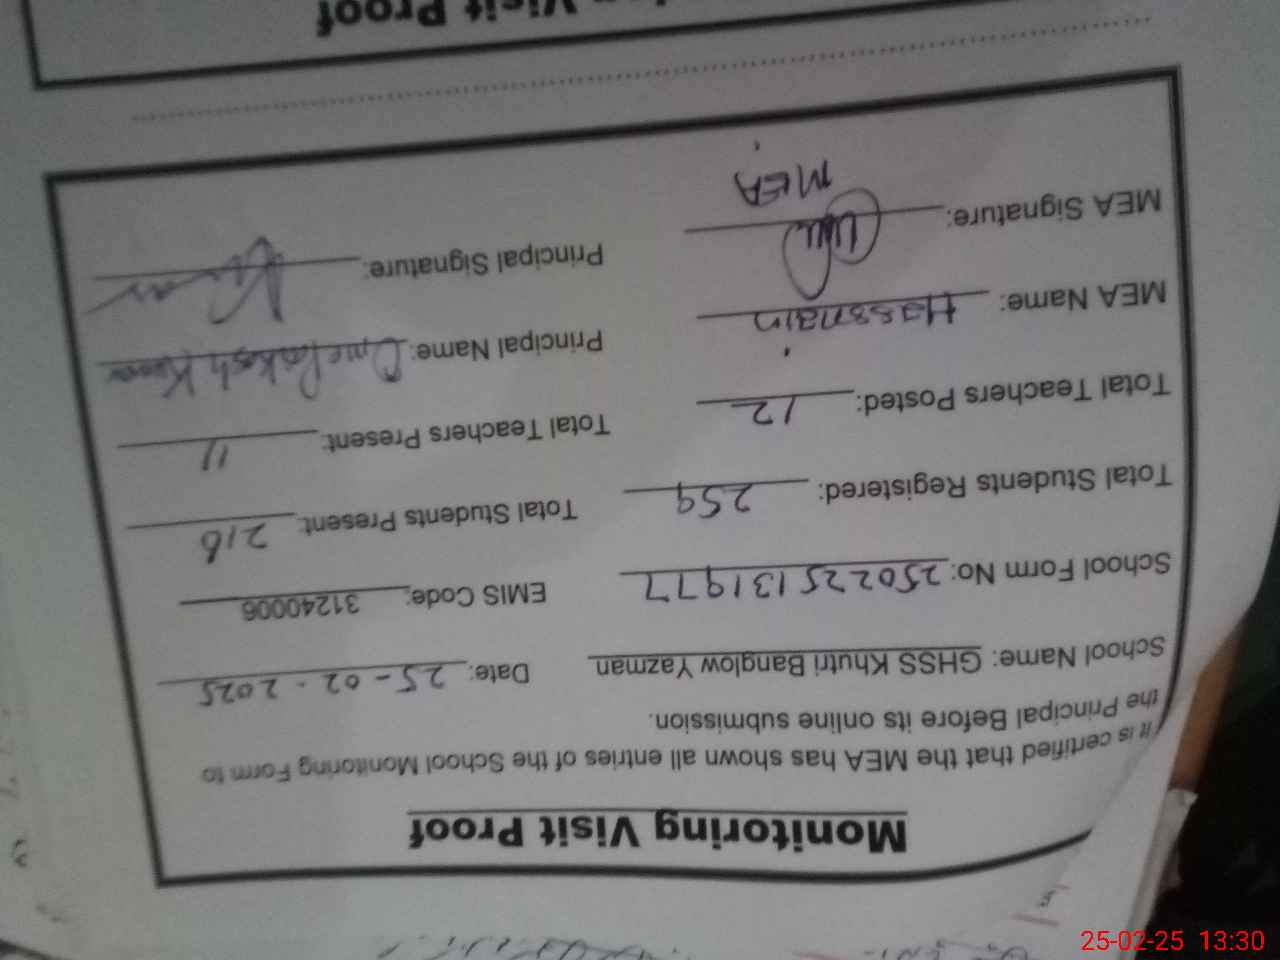 Monitoring Visit Proof
It is certified that the MEA has shown all entries of the School Monitoring Form to
the Principal Before its online submission.
School Name: GHSS Khutri Banglow Yazman Date: 25-02-2025
School Form No: 250225131977 EMIS Code: 31240006
Total Students Registered: 259 Total Students Present: 216
Total Teachers Posted: 12 Total Teachers Present: 11
MEA Name: Hassnain Principal Name: Om Parkash Kumar
MEA Signature: Principal Signature:
MEA
Visit Proof
25-02-25 13:30